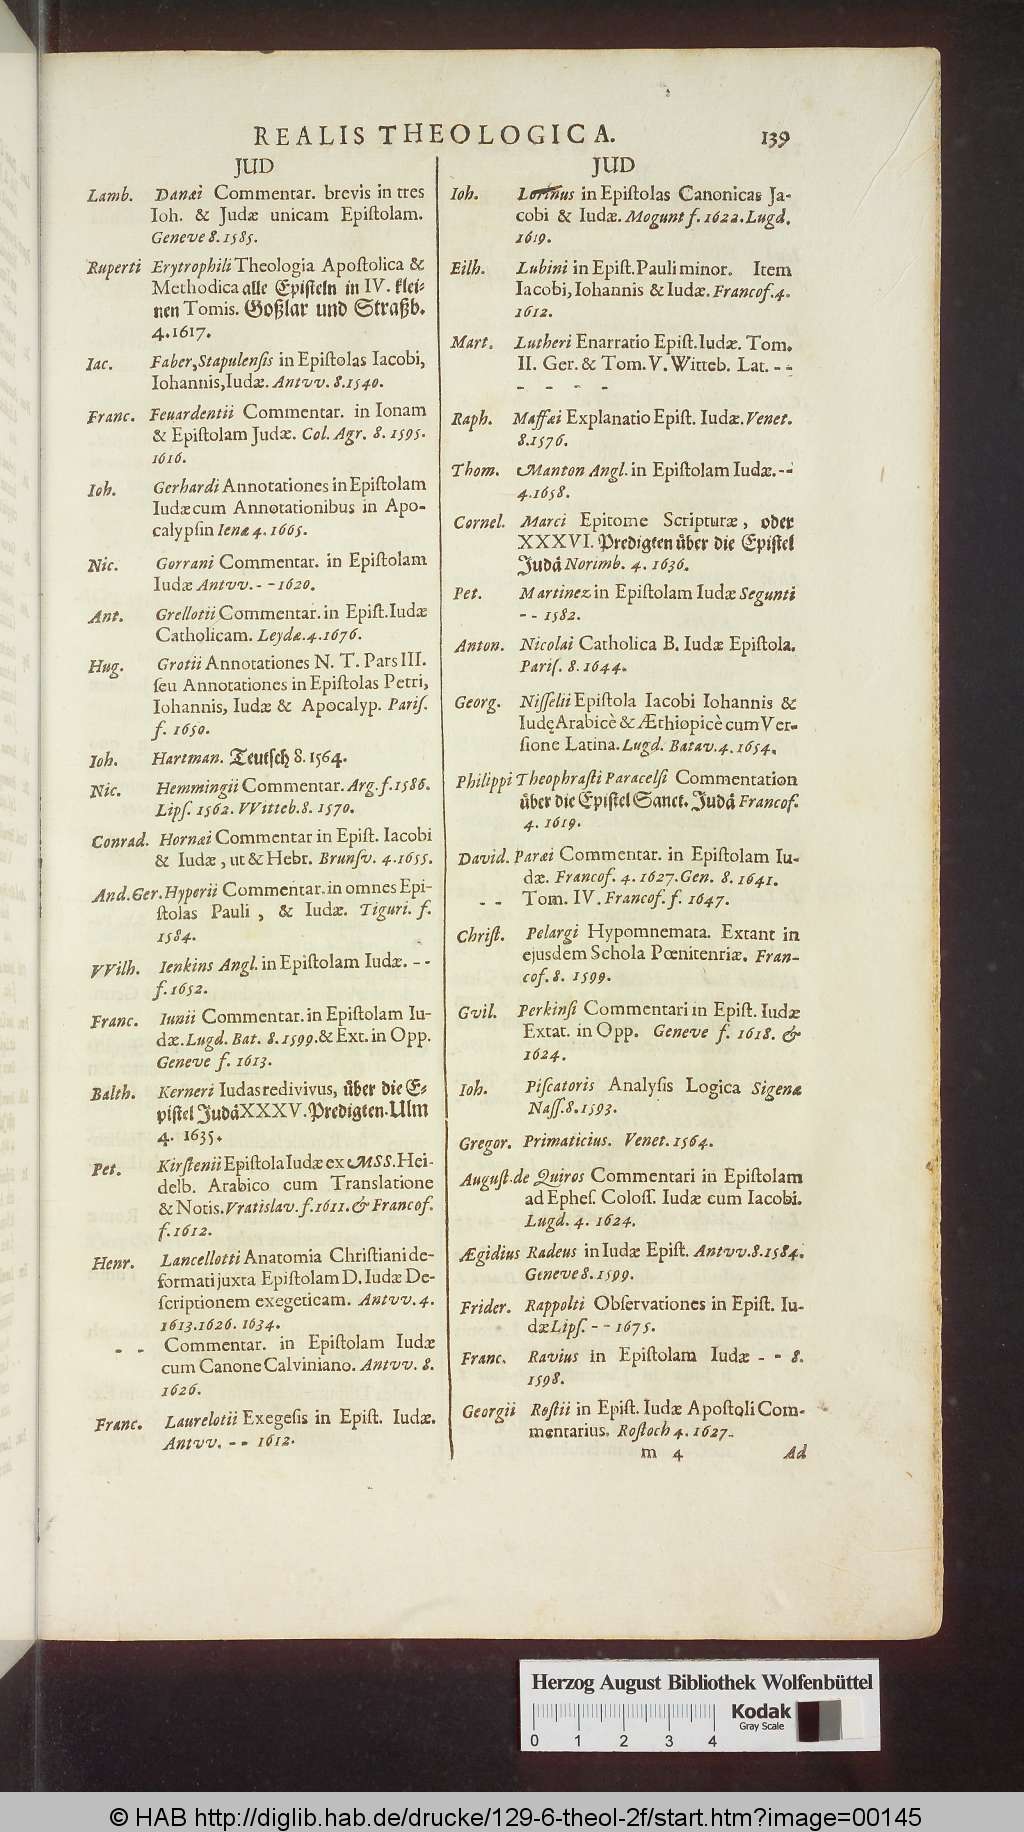 REALIS THEOLOGICA. 139
JUD
Lamb. Danæi Commentar. brevis in tres
Ioh. & Judæ unicam Epiſtolam.
Geneve 8. 1585.
Ruperti Erytrophili Theologia Apoſtolica &
Methodica alle Epiſteln in IV. klei-
nen Tomis. Goßlar und Straßb.
4. 1617.
Iac. Faber, Stapulenſis in Epiſtolas Iacobi,
Iohannis, Iudæ. Antvv. 8. 1540.
Franc. Feuardentii Commentar. in Ionam
& Epiſtolam Judæ. Col. Agr. 8. 1595.
1616.
Ioh. Gerhardi Annotationes in Epiſtolam
Iudæ cum Annotationibus in Apo-
calypſin Ienæ 4. 1665.
Nic. Gorrani Commentar. in Epiſtolam
Iudæ Antvv. - - 1620.
Ant. Grellotii Commentar. in Epiſt. Iudæ
Catholicam. Leydæ. 4. 1676.
Hug. Grotii Annotationes N. T. Pars III.
ſeu Annotationes in Epiſtolas Petri,
Iohannis, Iudæ & Apocalyp. Pariſ.
f. 1650.
Ioh. Hartman. Teutſch 8. 1564.
Nic. Hemmingii Commentar. Arg. f. 1586.
Lipſ. 1562. VVitteb. 8. 1570.
Conrad. Hornæi Commentar in Epiſt. Iacobi
& Iudæ, ut & Hebr. Brunſv. 4. 1655.
And. Ger. Hyperii Commentar. in omnes Epi-
ſtolas Pauli, & Iudæ. Tiguri. f.
1584.
VVilh. Ienkins Angl. in Epiſtolam Iudæ. - -
f. 1652.
Franc. Iunii Commentar. in Epiſtolam Iu-
dæ. Lugd. Bat. 8. 1599. & Ext. in Opp.
Geneve f. 1613.
Balth. Kerneri Iudas redivivus, über die E-
piſtel Judä XXXV. Predigten. Ulm
4. 1635.
Pet. Kirſtenii Epiſtola Iudæ ex MSS. Hei-
delb. Arabico cum Translatione
& Notis. Vratislav. f. 1611. & Francof.
f. 1612.
Henr. Lancellotti Anatomia Chriſtiani de-
formati juxta Epiſtolam D. Iudæ De-
ſcriptionem exegeticam. Antvv. 4.
1613. 1626. 1634.
- - Commentar. in Epiſtolam Iudæ
cum Canone Calviniano. Antvv. 8.
1626.
Franc. Laurelotii Exegeſis in Epiſt. Iudæ.
Antvv. - - 1612.
JUD
Ioh. Lorinus in Epiſtolas Canonicas Ja-
cobi & Iudæ. Mogunt f. 1622. Lugd.
1619.
Eilh. Lubini in Epiſt. Pauli minor. Item
Iacobi, Iohannis & Iudæ. Francof. 4.
1612.
Mart. Lutheri Enarratio Epiſt. Iudæ. Tom.
II. Ger. & Tom. V. Witteb. Lat. - -
- - - -
Raph. Maffæi Explanatio Epiſt. Iudæ. Venet.
8. 1576.
Thom. Manton Angl. in Epiſtolam Iudæ. - -
4. 1658.
Cornel. Marci Epitome Scripturæ, oder
XXXVI. Predigten über die Epiſtel
Judä Norimb. 4. 1636.
Pet. Martinez in Epiſtolam Iudæ Segunti
- - 1582.
Anton. Nicolai Catholica B. Iudæ Epiſtola.
Pariſ. 8. 1644.
Georg. Niſſelii Epiſtola Iacobi Iohannis &
Iudę Arabicè & Æthiopicè cum Ver-
ſione Latina. Lugd. Batav. 4. 1654.
Philippi Theophraſti Paracelſi Commentation
über die Epiſtel Sanct. Judä Francof.
4. 1619.
David. Paræi Commentar. in Epiſtolam Iu-
dæ. Francof. 4. 1627. Gen. 8. 1641.
- - Tom. IV. Francof. f. 1647.
Chriſt. Pelargi Hypomnemata. Extant in
ejusdem Schola Pœnitentiæ. Fran-
cof. 8. 1599.
Gvil. Perkinſi Commentari in Epiſt. Iudæ
Extat. in Opp. Geneve f. 1618. &
1624.
Ioh. Piſcatoris Analyſis Logica Sigenæ
Naſſ. 8. 1593.
Gregor. Primaticius. Venet. 1564.
Auguſt. de Quiros Commentari in Epiſtolam
ad Epheſ. Coloſſ. Iudæ cum Iacobi.
Lugd. 4. 1624.
Ægidius Radeus in Iudæ Epiſt. Antvv. 8. 1584.
Geneve 8. 1599.
Frider. Rappolti Obſervationes in Epiſt. Iu-
dæ Lipſ. - - 1675.
Franc. Ravius in Epiſtolam Iudæ - - 8.
1598.
Georgii Roſtii in Epiſt. Iudæ Apoſtoli Com-
mentarius. Roſtoch 4. 1627.
m 4 Ad
Herzog August Bibliothek Wolfenbüttel
Kodak
Gray Scale
0 1 2 3 4
© HAB http://diglib.hab.de/drucke/129-6-theol-2f/start.htm?image=00145